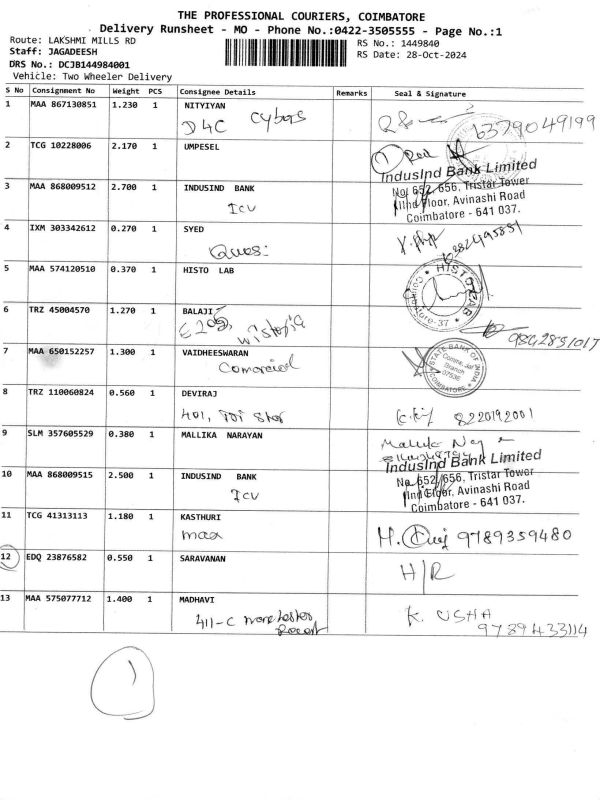 THE PROFESSIONAL COURIERS, COIMBATORE
Delivery Runsheet - MO - Phone No.:0422-3505555 - Page No.:1
Route: LAKSHMI MILLS RD
Staff: JAGADEESH
DRS No.: DCJB144984001
Vehicle: Two Wheeler Delivery
RS No.: 1449840
RS Date: 28-Oct-2024
S No Consignment No Weight PCS Consignee Details Remarks Seal & Signature
1 MAA 867130851 1.230 1 NITYIYAN
D4C 6379049199
2 TCG 10228006 2.170 1 UMPESEL
IndusInd Bank Limited
No. 652, 656, Tristar Tower
IInd Floor, Avinashi Road
Coimbatore - 641 037.
3 MAA 868009512 2.700 1 INDUSIND BANK
Icu
4 IXM 303342612 0.270 1 SYED
5 MAA 574120510 0.370 1 HISTO LAB
HISTO LAB
6 TRZ 45004570 1.270 1 BALAJI
7 MAA 650152257 1.300 1 VAIDHEESWARAN
STATE BANK OF INDIA
COIMBATORE
8 TRZ 110060824 0.560 1 DEVIRAJ
8220192001
9 SLM 357605529 0.380 1 MALLIKA NARAYAN
IndusInd Bank Limited
No. 652/656, Tristar Tower
IInd Floor, Avinashi Road
Coimbatore - 641 037.
10 MAA 868009515 2.500 1 INDUSIND BANK
Icu
11 TCG 41313113 1.180 1 KASTHURI
max 9789359480
12 EDQ 23876582 0.550 1 SARAVANAN
H/R
13 MAA 575077712 1.400 1 MADHAVI
411-C
K. USHA
9789433114
1